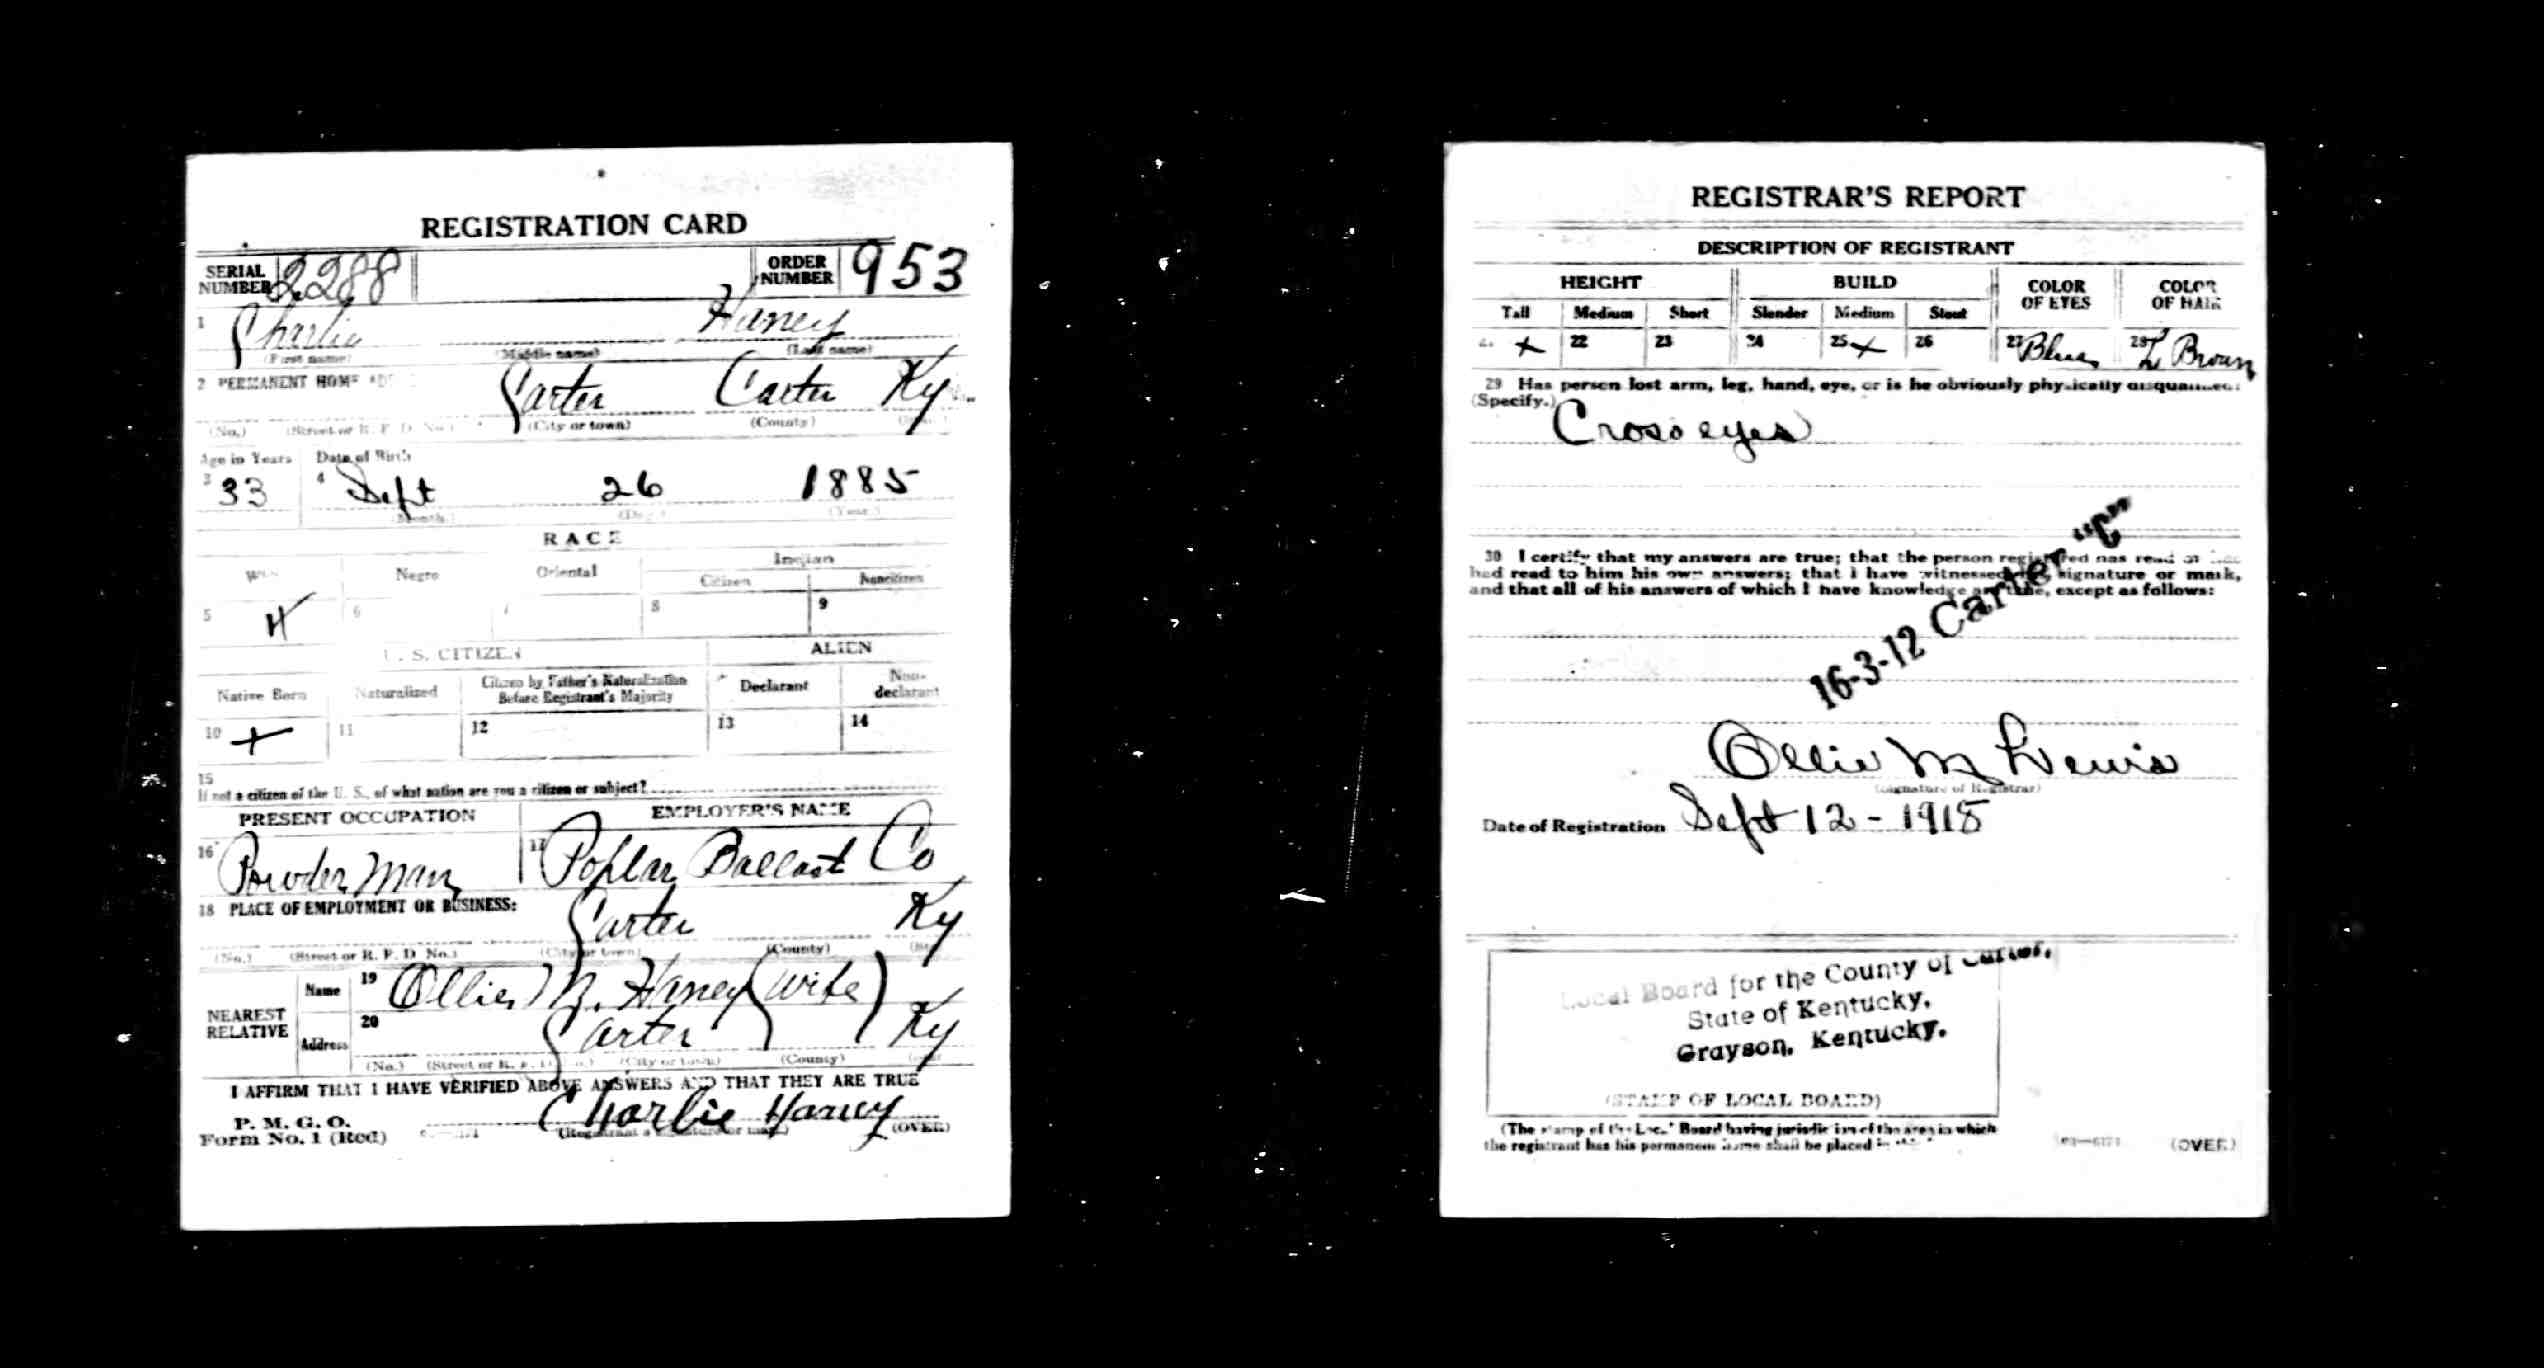 REGISTRATION CARD
SERIAL NUMBER 2288 ORDER NUMBER 953
1 Charlie Haney
(First name) (Middle name) (Last name)
2 PERMANENT HOME
Carter Carter Ky
(No.) (Street or R. F. D. No.) (City or town) (County)
Age in Years Date of Birth
3 33 4 Sept 26 1885
(Month.) (Day.) (Year.)
RACE
Negro Oriental Indian
Citizen Noncitizen
5 X 6 7 8 9
U. S. CITIZEN ALIEN
Native Born Naturalized Citizen by Father's Naturalization Before Registrant's Majority Declarant Non-declarant
10 X 11 12 13 14
15
If not a citizen of the U. S., of what nation are you a citizen or subject?
PRESENT OCCUPATION EMPLOYER'S NAME
16 Powder Man 17 Poplar Ballast Co
18 PLACE OF EMPLOYMENT OR BUSINESS:
Carter Ky
(No.) (Street or R. F. D. No.) (City or town) (County)
NEAREST RELATIVE
Name 19 Ollie M. Haney (wife)
Address 20 Carter Ky
(No.) (Street or R. F. D. No.) (City or town) (County)
I AFFIRM THAT I HAVE VERIFIED ABOVE ANSWERS AND THAT THEY ARE TRUE
P. M. G. O.
Form No. 1 (Red) Charlie Haney
(Registrant's signature or mark) (OVER)
REGISTRAR'S REPORT
DESCRIPTION OF REGISTRANT
HEIGHT BUILD COLOR OF EYES COLOR OF HAIR
Tall Medium Short Slender Medium Stout
X 22 23 24 25 X 26 27 Blue 28 L Brown
29 Has person lost arm, leg, hand, eye, or is he obviously physically disqualified?
(Specify.)
Cross eyes
30 I certify that my answers are true; that the person registered has read or has
had read to him his own answers; that I have witnessed his signature or mark,
and that all of his answers of which I have knowledge are true, except as follows:
16-3-12 Carter "C"
Ollie M Lewis
(Signature of Registrar)
Date of Registration Sept 12 - 1918
Local Board for the County of Carter,
State of Kentucky,
Grayson, Kentucky.
(STAMP OF LOCAL BOARD)
(The stamp of the Local Board having jurisdiction of the area in which
the registrant has his permanent home shall be placed in
(OVER)